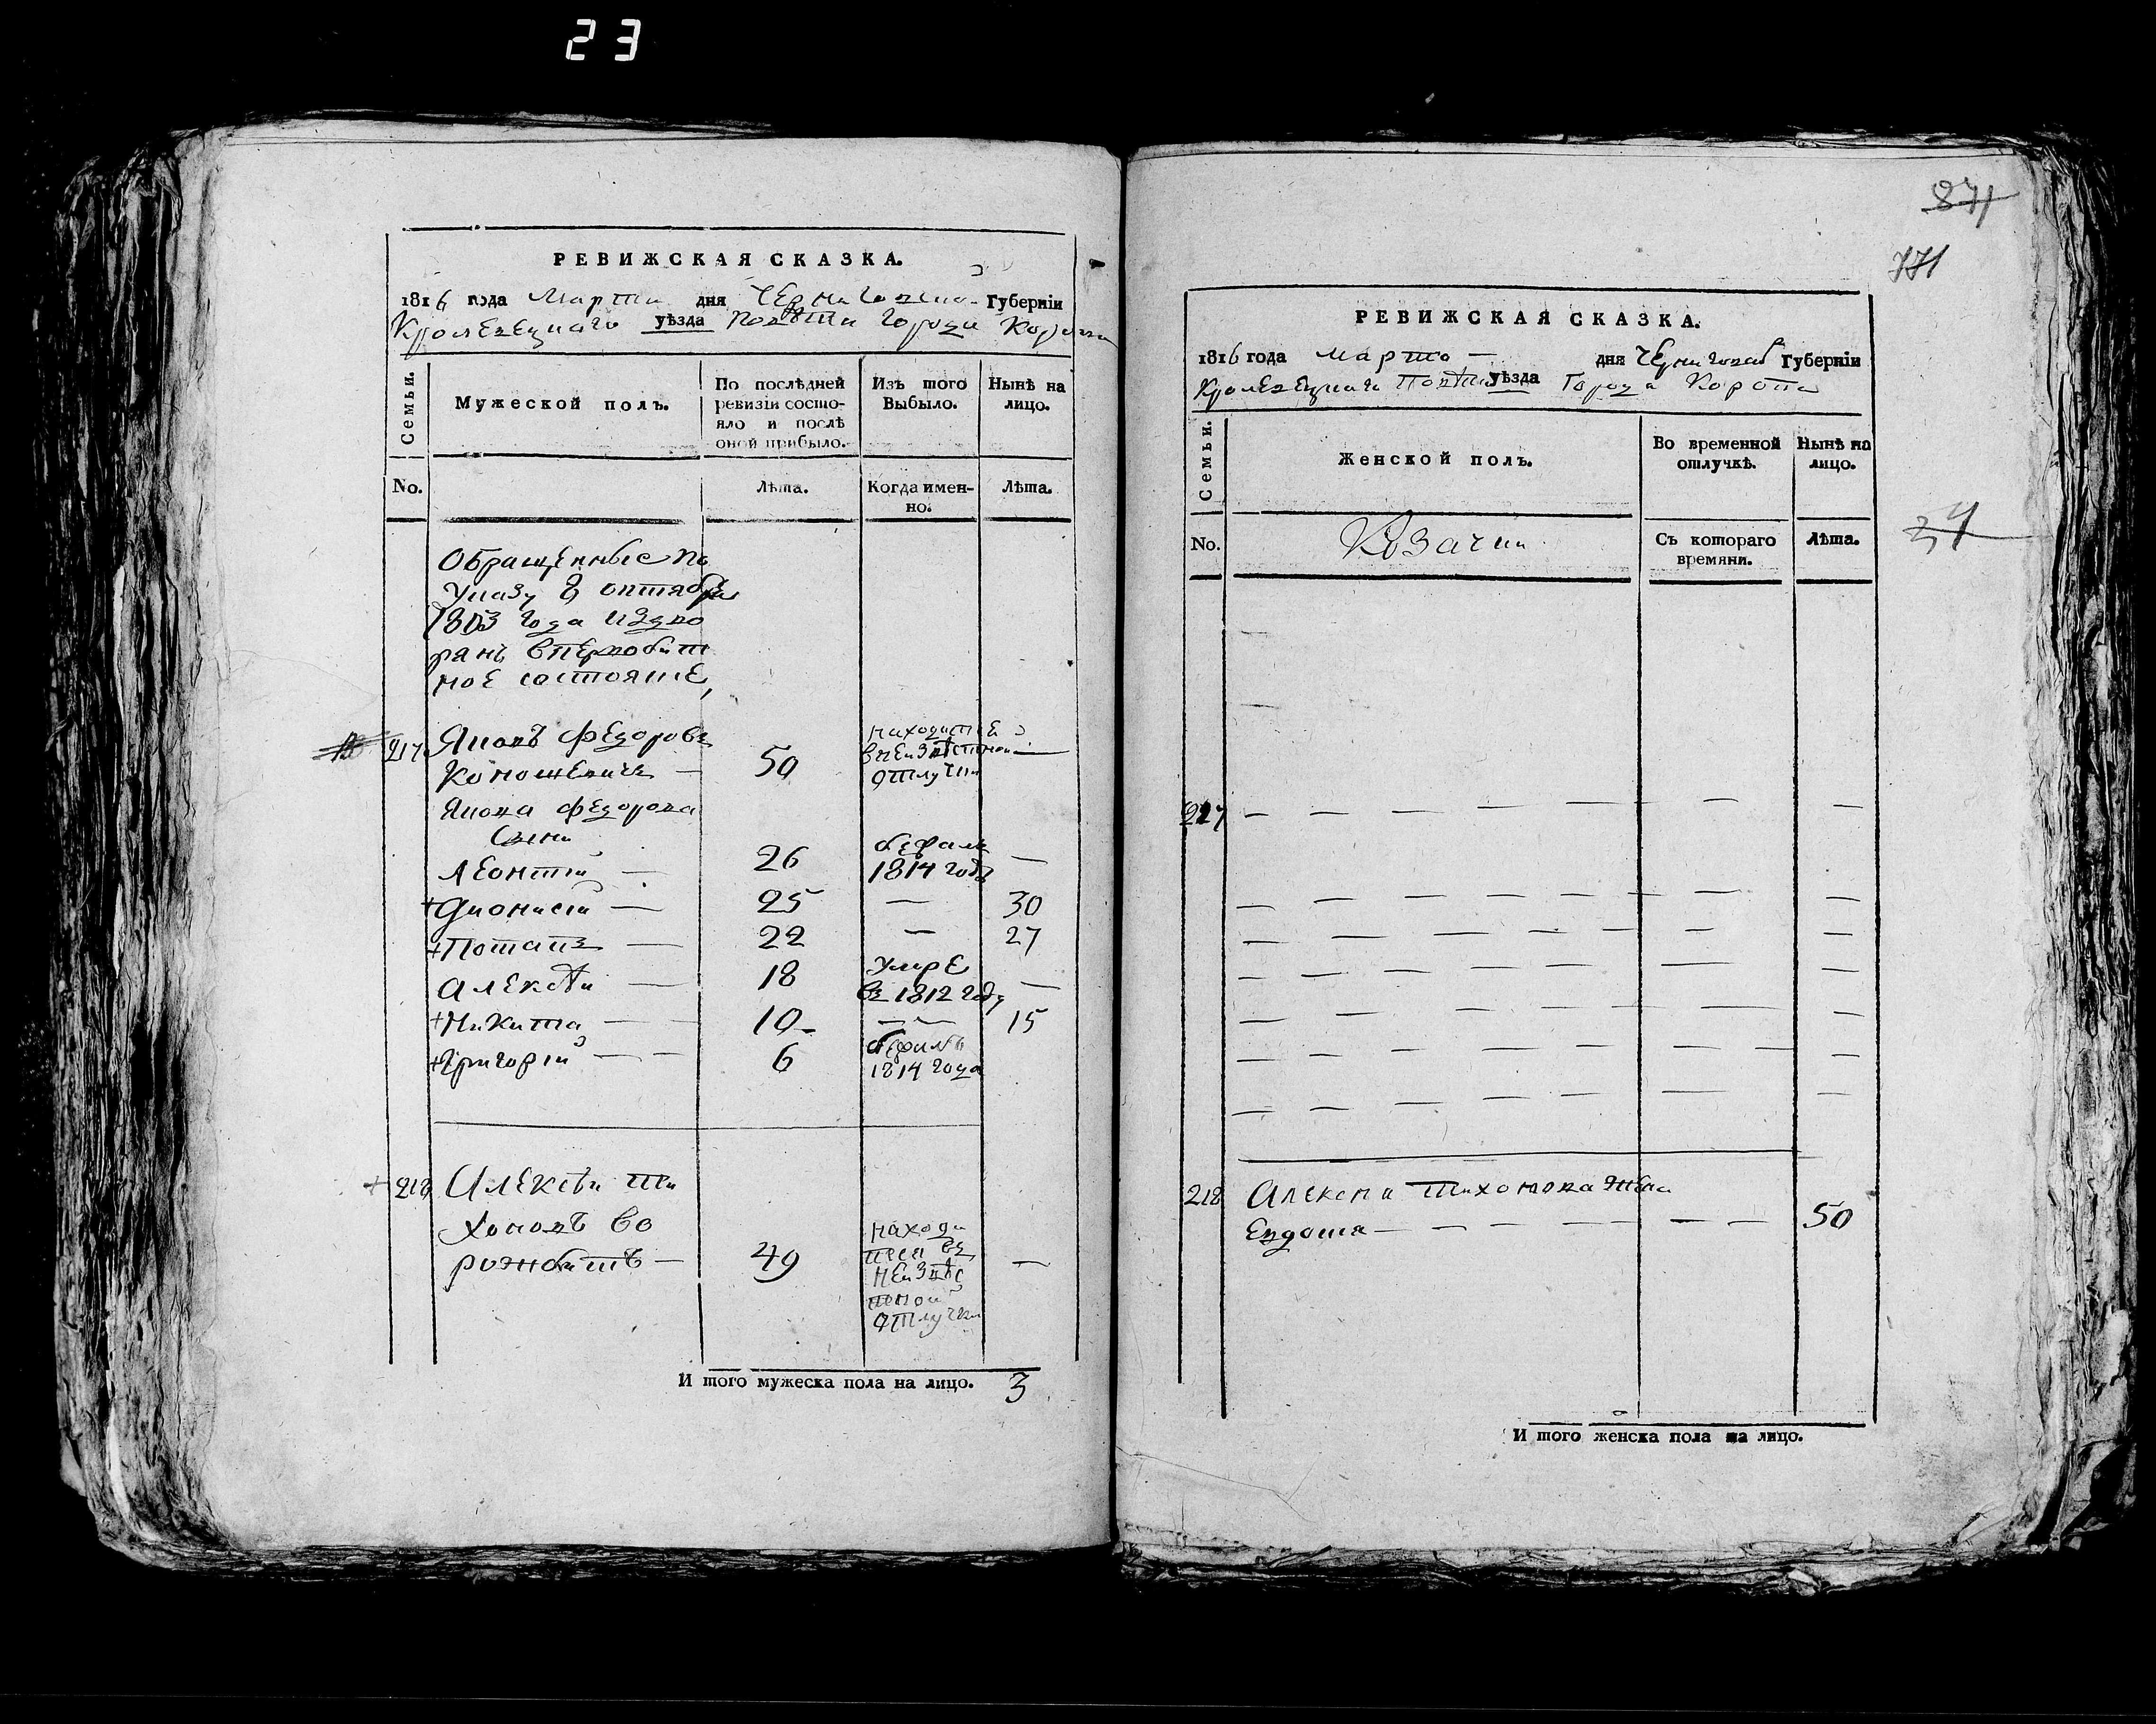 23
РЕВИЖСКАЯ СКАЗКА.
1816 года Марта дня Черниговской Губерніи
Кролевецкаго уѣзда Повѣта города Коропа
Семьи.
Мужеской полъ.
По послѣдней ревизіи состояло и послѣ оной прибыло.
Изъ того Выбыло.
Нынѣ на лицо.
No.
Лѣта.
Когда именно.
Лѣта.
Обращенные по
указу 8 октября
1803 года издво
рянъ впервобит
ное состояние
217 Яковъ Федоровъ
Коношевичъ — 50 находится
внеизвѣстной —
отлучки
Якова Федорова
сыни
Леонтій — 26 1814 годъ —
+Дионисій — 25 — 30
+Потапъ — 22 — 27
Алексѣй — 18 умре
въ 1812 году —
+Никита — 10 — 15
+Григорій — 6
1814 года
+ 218 Алексѣй Ти
хоновъ Во
рожбитъ — 49 находи
тся въ
неизвѣс
тной
отлучки —
И того мужеска пола на лицо. 3
871
771
РЕВИЖСКАЯ СКАЗКА.
1816 года марта — дня Черниговской Губерніи
Кролевецкаго Повѣта уѣзда Города Коропа
Семьи.
Женской полъ.
Во временной отлучкѣ.
Нынѣ на лицо.
No.
Козачки
Съ котораго времяни.
Лѣта.
217
218 Алексея Тихонова жена
Евдокия — 50
И того женска пола на лицо.